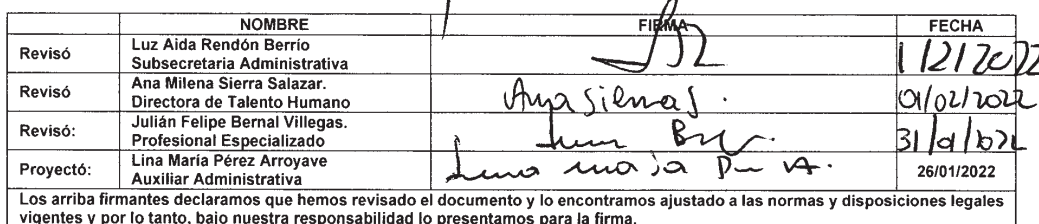 NOMBRE FIRMA FECHA
Revisó Luz Aida Rendón Berrío
Subsecretaria Administrativa 1/2/2022
Revisó Ana Milena Sierra Salazar.
Directora de Talento Humano Ana Sierra S. 01/02/2022
Revisó: Julián Felipe Bernal Villegas.
Profesional Especializado 31/01/2022
Proyectó: Lina María Pérez Arroyave
Auxiliar Administrativa Lina María P A. 26/01/2022
Los arriba firmantes declaramos que hemos revisado el documento y lo encontramos ajustado a las normas y disposiciones legales
vigentes y por lo tanto, bajo nuestra responsabilidad lo presentamos para la firma.